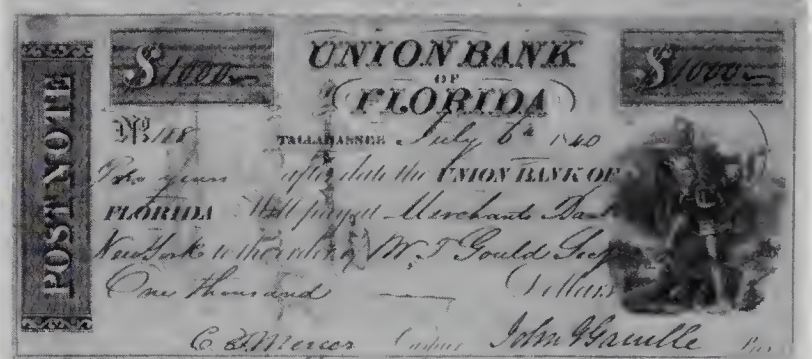 POST NOTE
$1000
UNION BANK
OF
FLORIDA
$1000
No 188
TALLAHASSEE July 6th 1840
Two years after date the UNION BANK OF
FLORIDA Will pay at Merchants Bank
New York to the order of W. T. Gould
One thousand Dollars
C. Mercer John Gamble